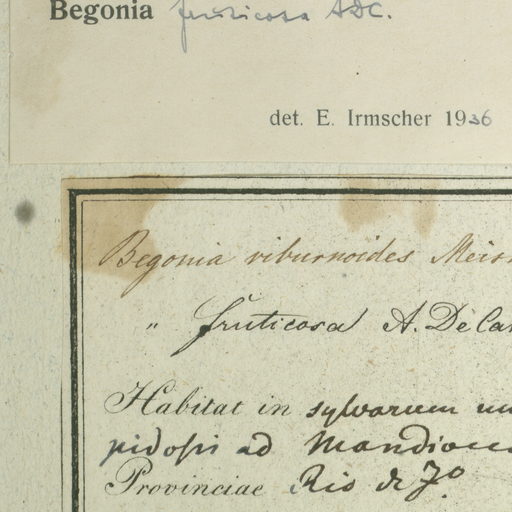 Begonia fruticosa ADC.
det. E. Irmscher 1936
Begonia viburnoides Meis
" fruticosa A. DeCan
Habitat in sylvarum um
pidosis ad Mandiocc
Provinciae Rio de Jº